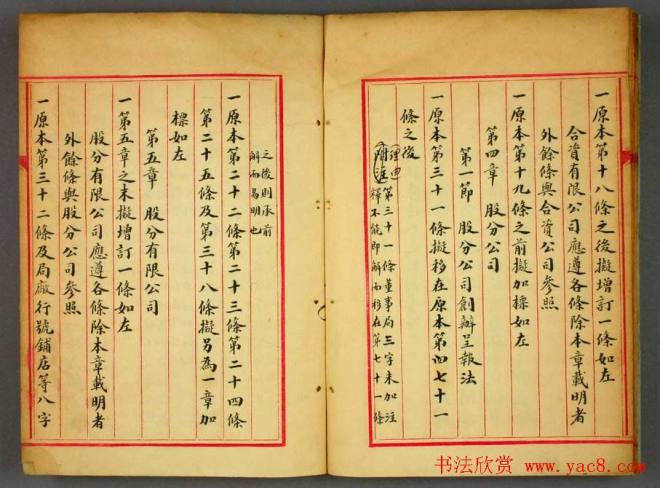 一原本第十八條之後擬增訂一條如左
合資有限公司應遵各條除本章載明者
外餘條與合資公司參照
一原本第十九條之前擬加標如左
第四章 股分公司
第一節 股分公司創辦呈報法
一原本第三十一條擬移在原本第四七十一
條之後
理由
附註
第三十一條董事局三字未加注
釋不能即解而移在第七十一條
之後則承前
解而易明也
一原本第二十二條第二十三條第二十四條
第二十五條及第三十八條擬另為一章加
標如左
第五章 股分有限公司
一第五章之末擬增訂一條如左
股分有限公司應遵各條除本章載明者
外餘條與股分公司參照
一原本第三十二條及局廠行號鋪店等八字
书法欣赏 www.yac8.com